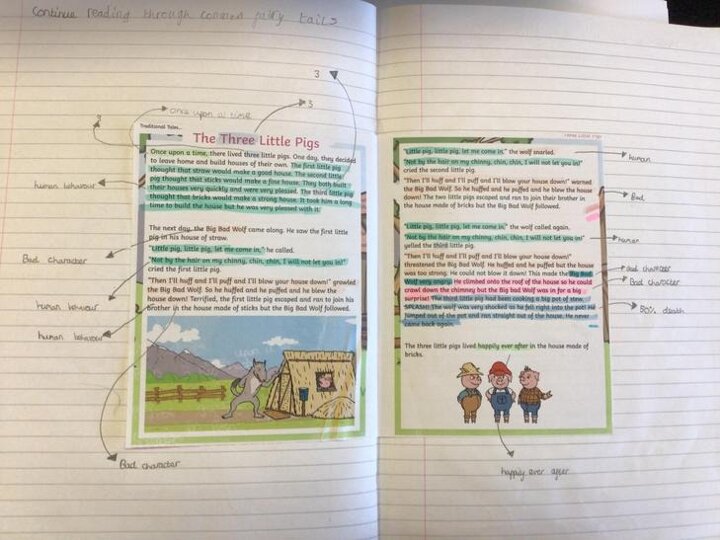 Continue reading through common fairy tails
3
once upon a time
3
3
Traditional Tales...
The Three Little Pigs
Once upon a time, there lived three little pigs. One day, they decided
to leave home and build houses of their own. The first little pig
thought that straw would make a good house. The second little
pig thought that sticks would make a fine house. They both built
their houses very quickly and were very pleased. The third little pig
thought that bricks would make a strong house. It took him a long
time to build the house but he was very pleased with it.
The next day, the Big Bad Wolf came along. He saw the first little
pig in his house of straw.
"Little pig, little pig, let me come in," he called.
"Not by the hair on my chinny, chin, chin, I will not let you in!"
cried the first little pig.
"Then I'll huff and I'll puff and I'll blow your house down!" growled
the Big Bad Wolf. So he huffed and he puffed and he blew the
house down! Terrified, the first little pig escaped and ran to join his
brother in the house made of sticks but the Big Bad Wolf followed.
human behaviour
Bad character
human behaviour
human behaviour
Bad character
The Three Little Pigs
"Little pig, little pig, let me come in," the wolf snarled.
"Not by the hair on my chinny, chin, chin, I will not let you in!"
cried the second little pig.
"Then I'll huff and I'll puff and I'll blow your house down!" warned
the Big Bad Wolf. So he huffed and he puffed and he blew the house
down! The two little pigs escaped and ran to join their brother in
the house made of bricks but the Big Bad Wolf followed.
"Little pig, little pig, let me come in," the wolf called again.
"Not by the hair on my chinny, chin, chin, I will not let you in!"
yelled the third little pig.
"Then I'll huff and I'll puff and I'll blow your house down!"
threatened the Big Bad Wolf. He huffed and he puffed but the house
was too strong. He could not blow it down! This made the Big Bad
Wolf very angry. He climbed onto the roof of the house so he could
crawl down the chimney but the Big bad Wolf was in for a big
surprise! The third little pig had been cooking a big pot of stew.
SPLASH! The wolf was very shocked as he fell right into the pot! He
jumped out of the pot and ran straight out of the house. He never
came back again.
The three little pigs lived happily ever after in the house made of
bricks.
human
Bad
human
Bad character
Bad character
50% death
happily ever after